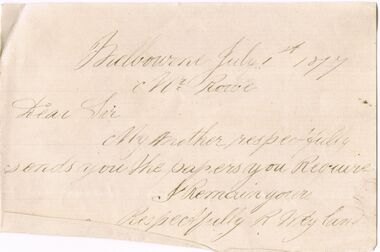 Melbourne July 1st 1877
Mr Rowe
Dear Sir
My Mother respectfully
sends you the papers you Require
I Remain your
Respectfully R